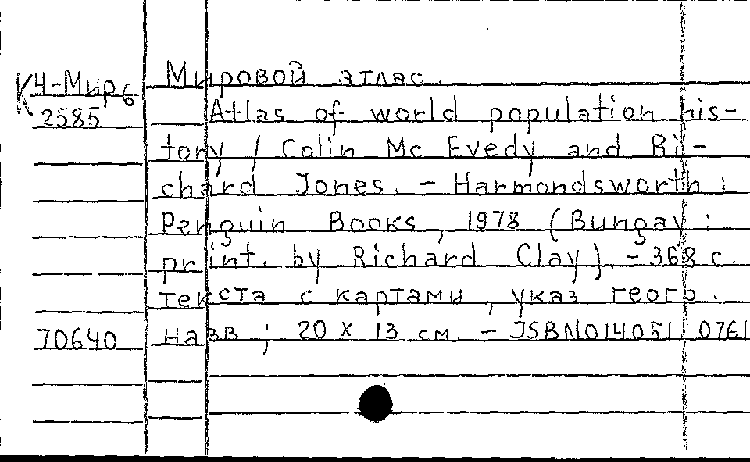 К4-Мир6
2585
Мировой атлас.
Atlas of world population his-
tory / Colin Mc Evedy and Ri-
chard Jones. - Harmondsworth :
Penguin Books, 1978 (Bungay :
print. by Richard Clay). - 368 с.
текста с картами, указ геогр.
70640
назв ; 20 x 13 см - JSBN 014051 0761